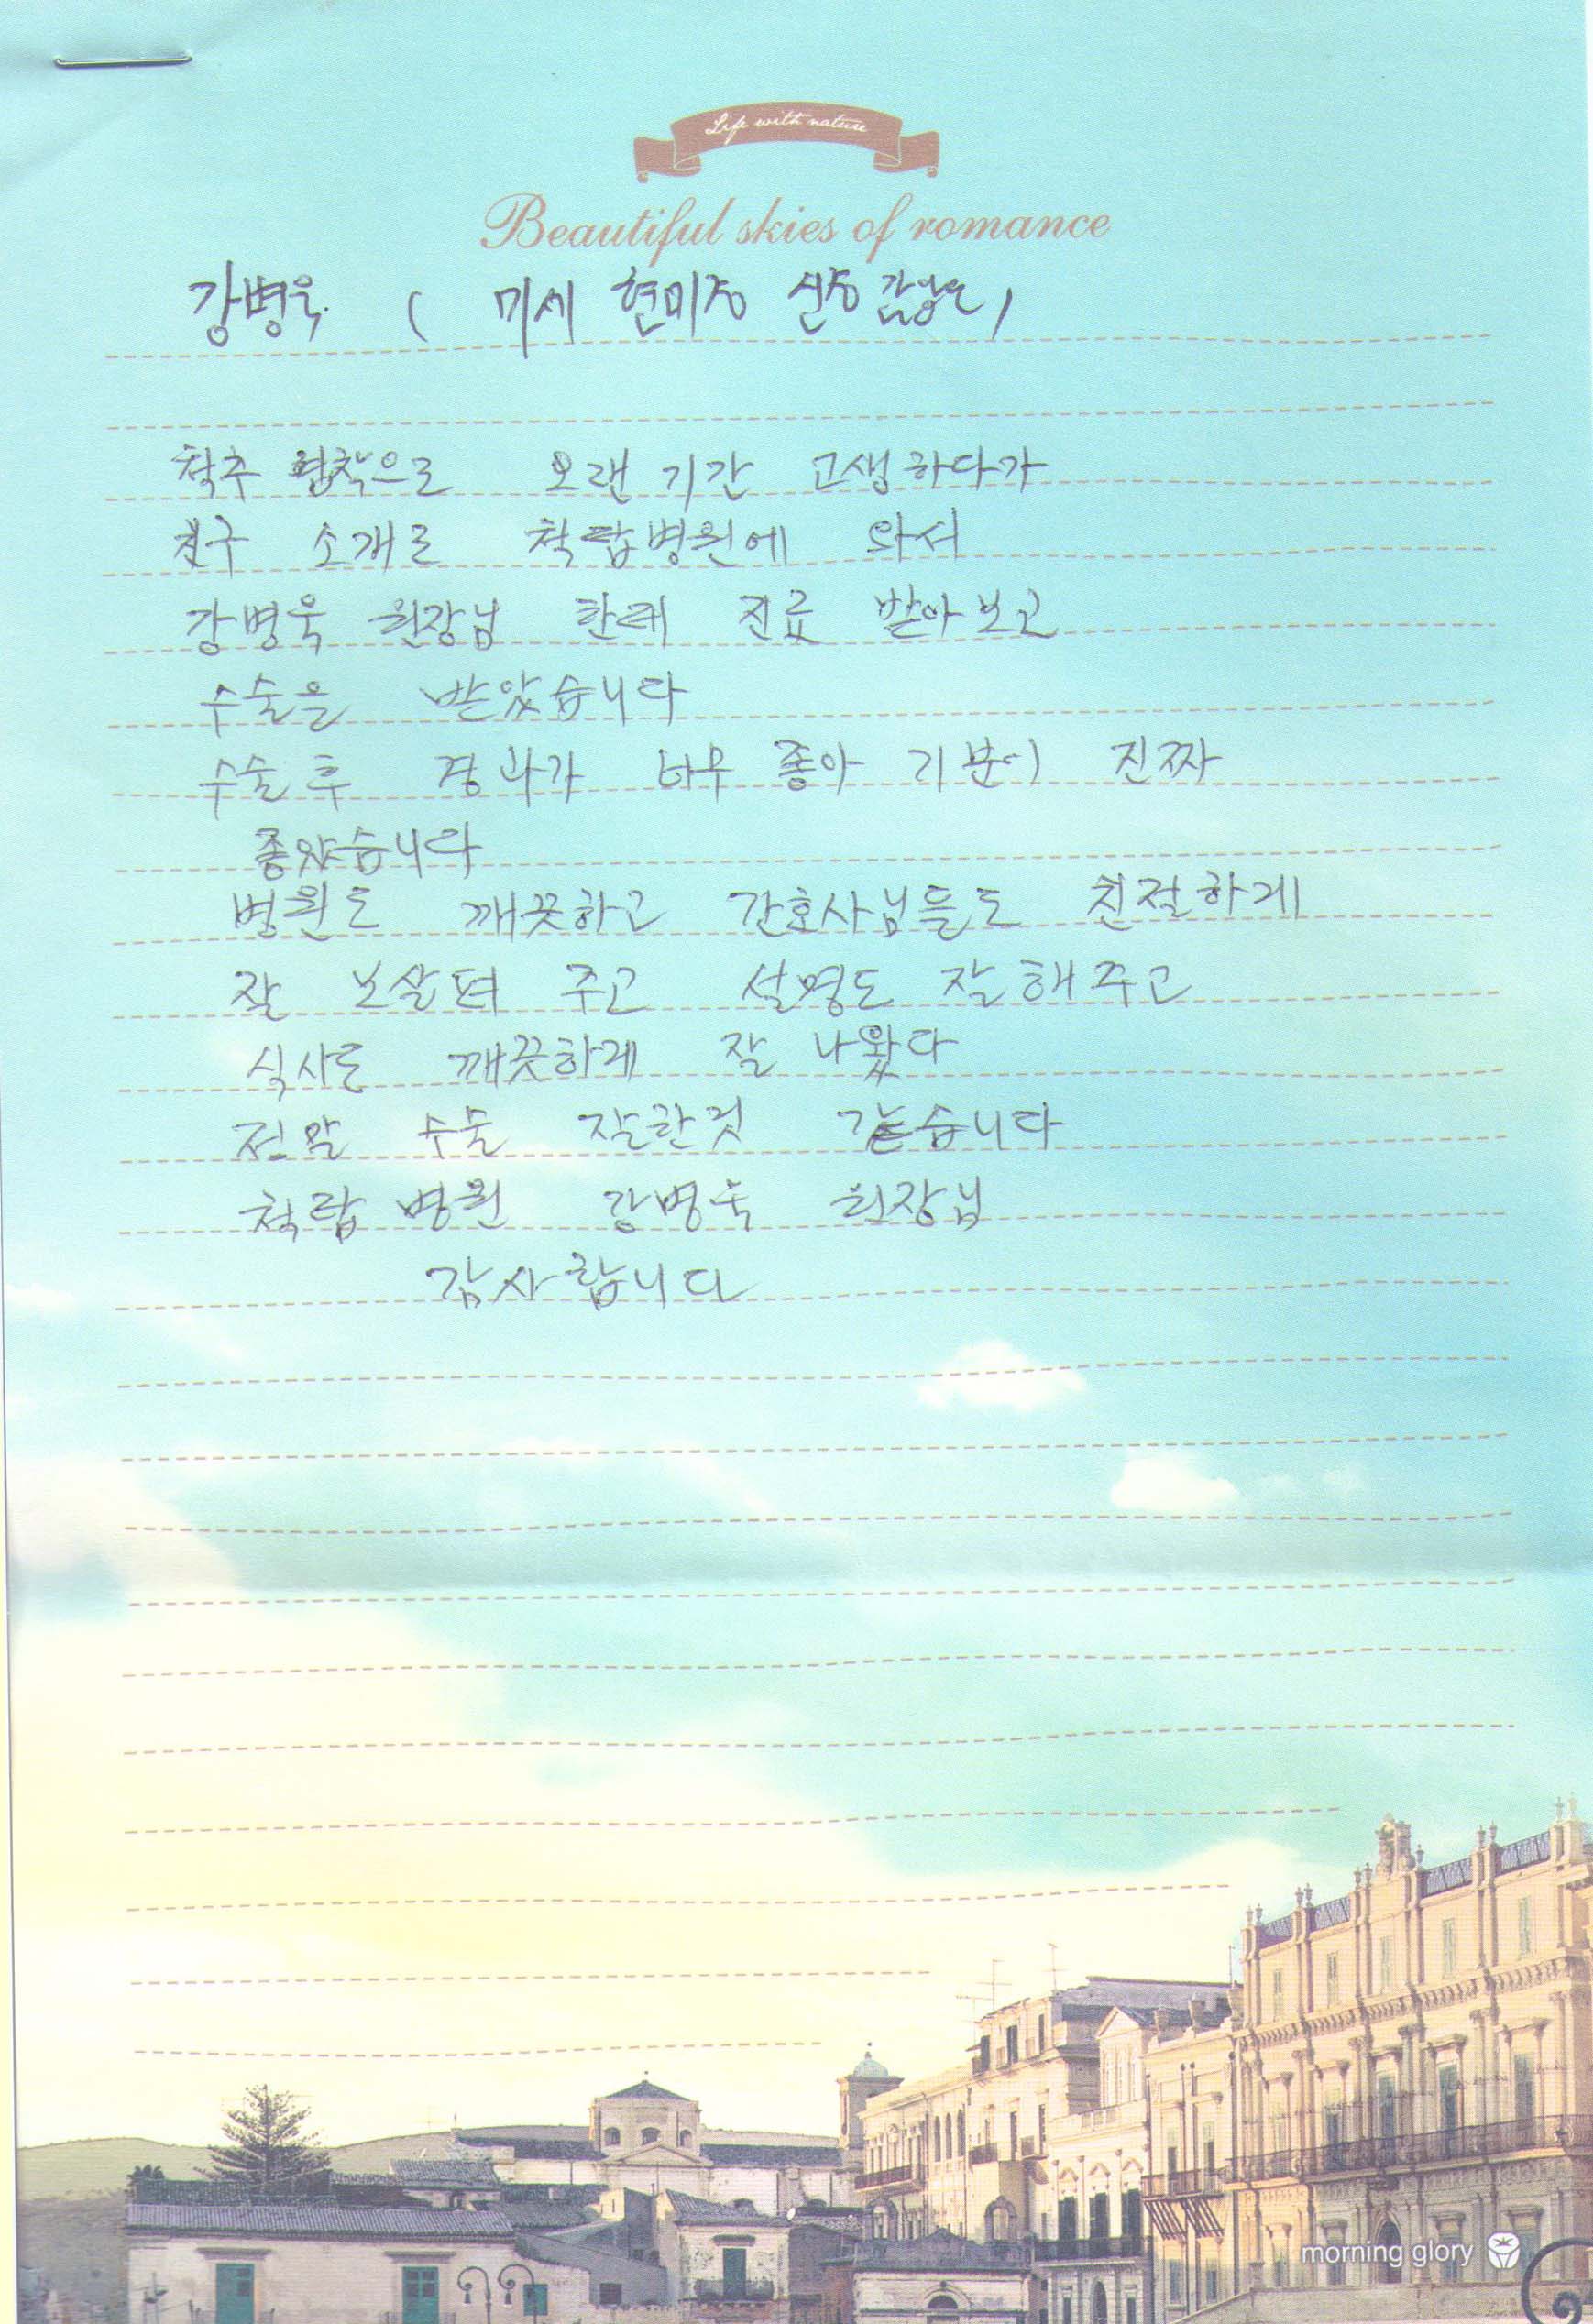 Life with nature
Beautiful skies of romance
강병욱 ( 미세 현미경 신경 감압은)
척추 협착으로 오랜 기간 고생하다가
친구 소개로 척탑병원에 와서
강병욱 원장님 한테 진료 받아보고
수술을 받았습니다
수술후 경과가 너무 좋아 기분이 진짜
좋았습니다
병원도 깨끗하고 간호사님들도 친절하게
잘 보살펴 주고 설명도 잘해주고
식사도 깨끗하게 잘 나왔다
정말 수술 잘한것 같습니다
척탑 병원 강병욱 원장님
감사합니다
morning glory